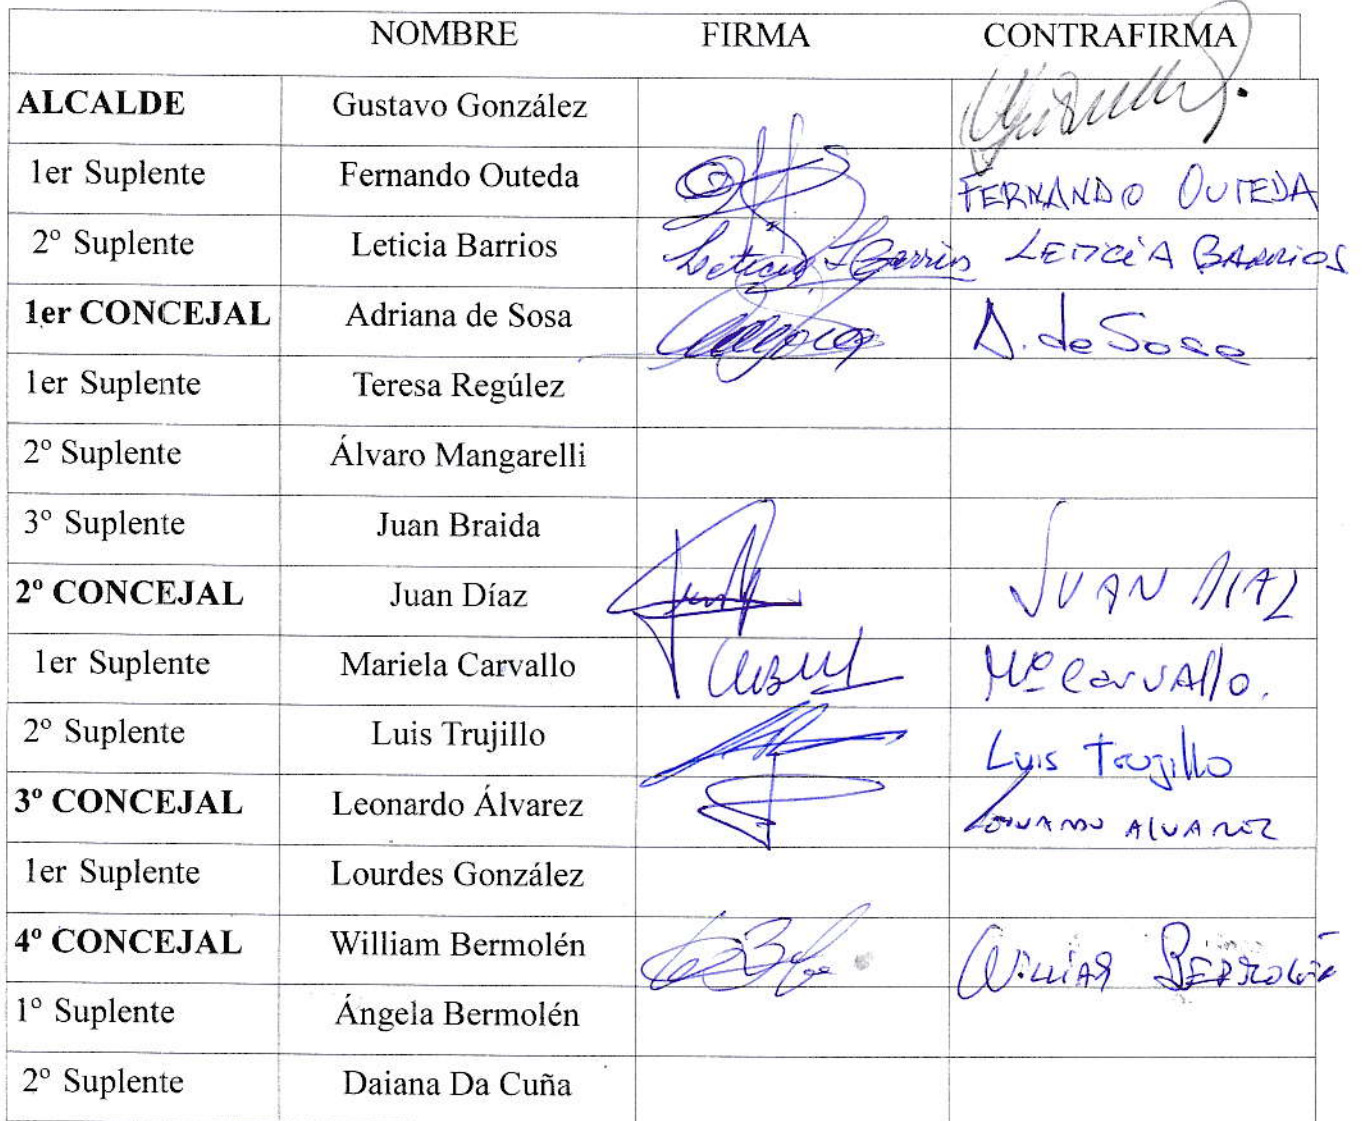 NOMBRE FIRMA CONTRAFIRMA
ALCALDE Gustavo González
1er Suplente Fernando Outeda FERNANDO OUTEDA
2º Suplente Leticia Barrios Leticia Barrios LETICIA BARRIOS
1er CONCEJAL Adriana de Sosa A. de Sosa
1er Suplente Teresa Regúlez
2º Suplente Álvaro Mangarelli
3º Suplente Juan Braida
2º CONCEJAL Juan Díaz JUAN DIAZ
1er Suplente Mariela Carvallo Mª Carvallo.
2º Suplente Luis Trujillo Luis Trujillo
3º CONCEJAL Leonardo Álvarez LEONARDO ALVAREZ
1er Suplente Lourdes González
4º CONCEJAL William Bermolén WILLIAM BERMOLÉN
1º Suplente Ángela Bermolén
2º Suplente Daiana Da Cuña